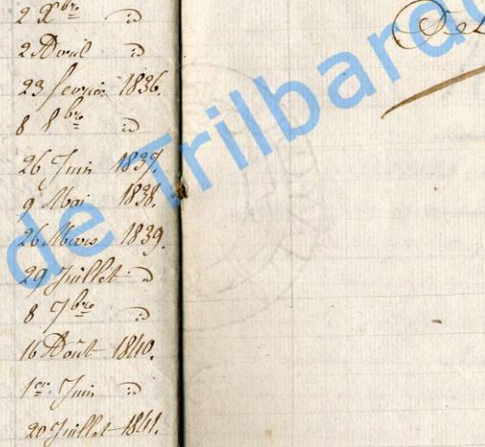 2 Xbre d°
2 Avril d°
23 fevrier 1836.
8 8bre d°
26 Juin 1837.
9 Mai 1838.
26 Mars 1839.
29 Juillet d°
8 7bre d°
16 Août 1840.
1er Juin d°
20 Juillet 1841.
de Trilbard